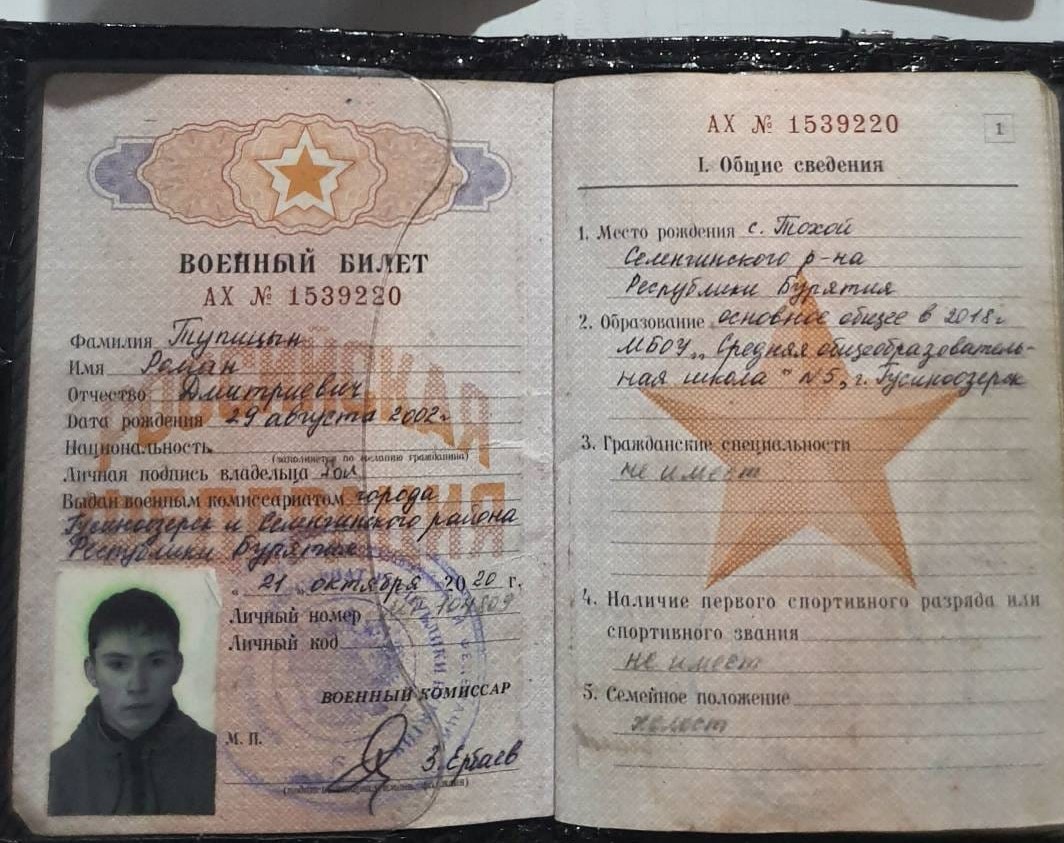 ВОЕННЫЙ БИЛЕТ
АХ № 1539220
Фамилия Тупицын
Имя Роман
Отчество Дмитриевич
Дата рождения 29 августа 2002г
Национальность
(заполняется по желанию гражданина)
Личная подпись владельца
Выдан военным комиссариатом города
Гусиноозерск и Селенгинского района
Республики Бурятия
„ 21 „ октября 2020 г.
Личный номер
Личный код
ВОЕННЫЙ КОМИССАР
М. П.
З. Ербаев
АХ № 1539220
1
I. Общие сведения
1. Место рождения с. Тохой
Селенгинского р-на
Республики Бурятия
2. Образование основное общее в 2018г
МБОУ „ Средняя общеобразователь-
ная школа " №5, г. Гусиноозерск
3. Гражданские специальности
не имеет
4. Наличие первого спортивного разряда или
спортивного звания
не имеет
5. Семейное положение
холост